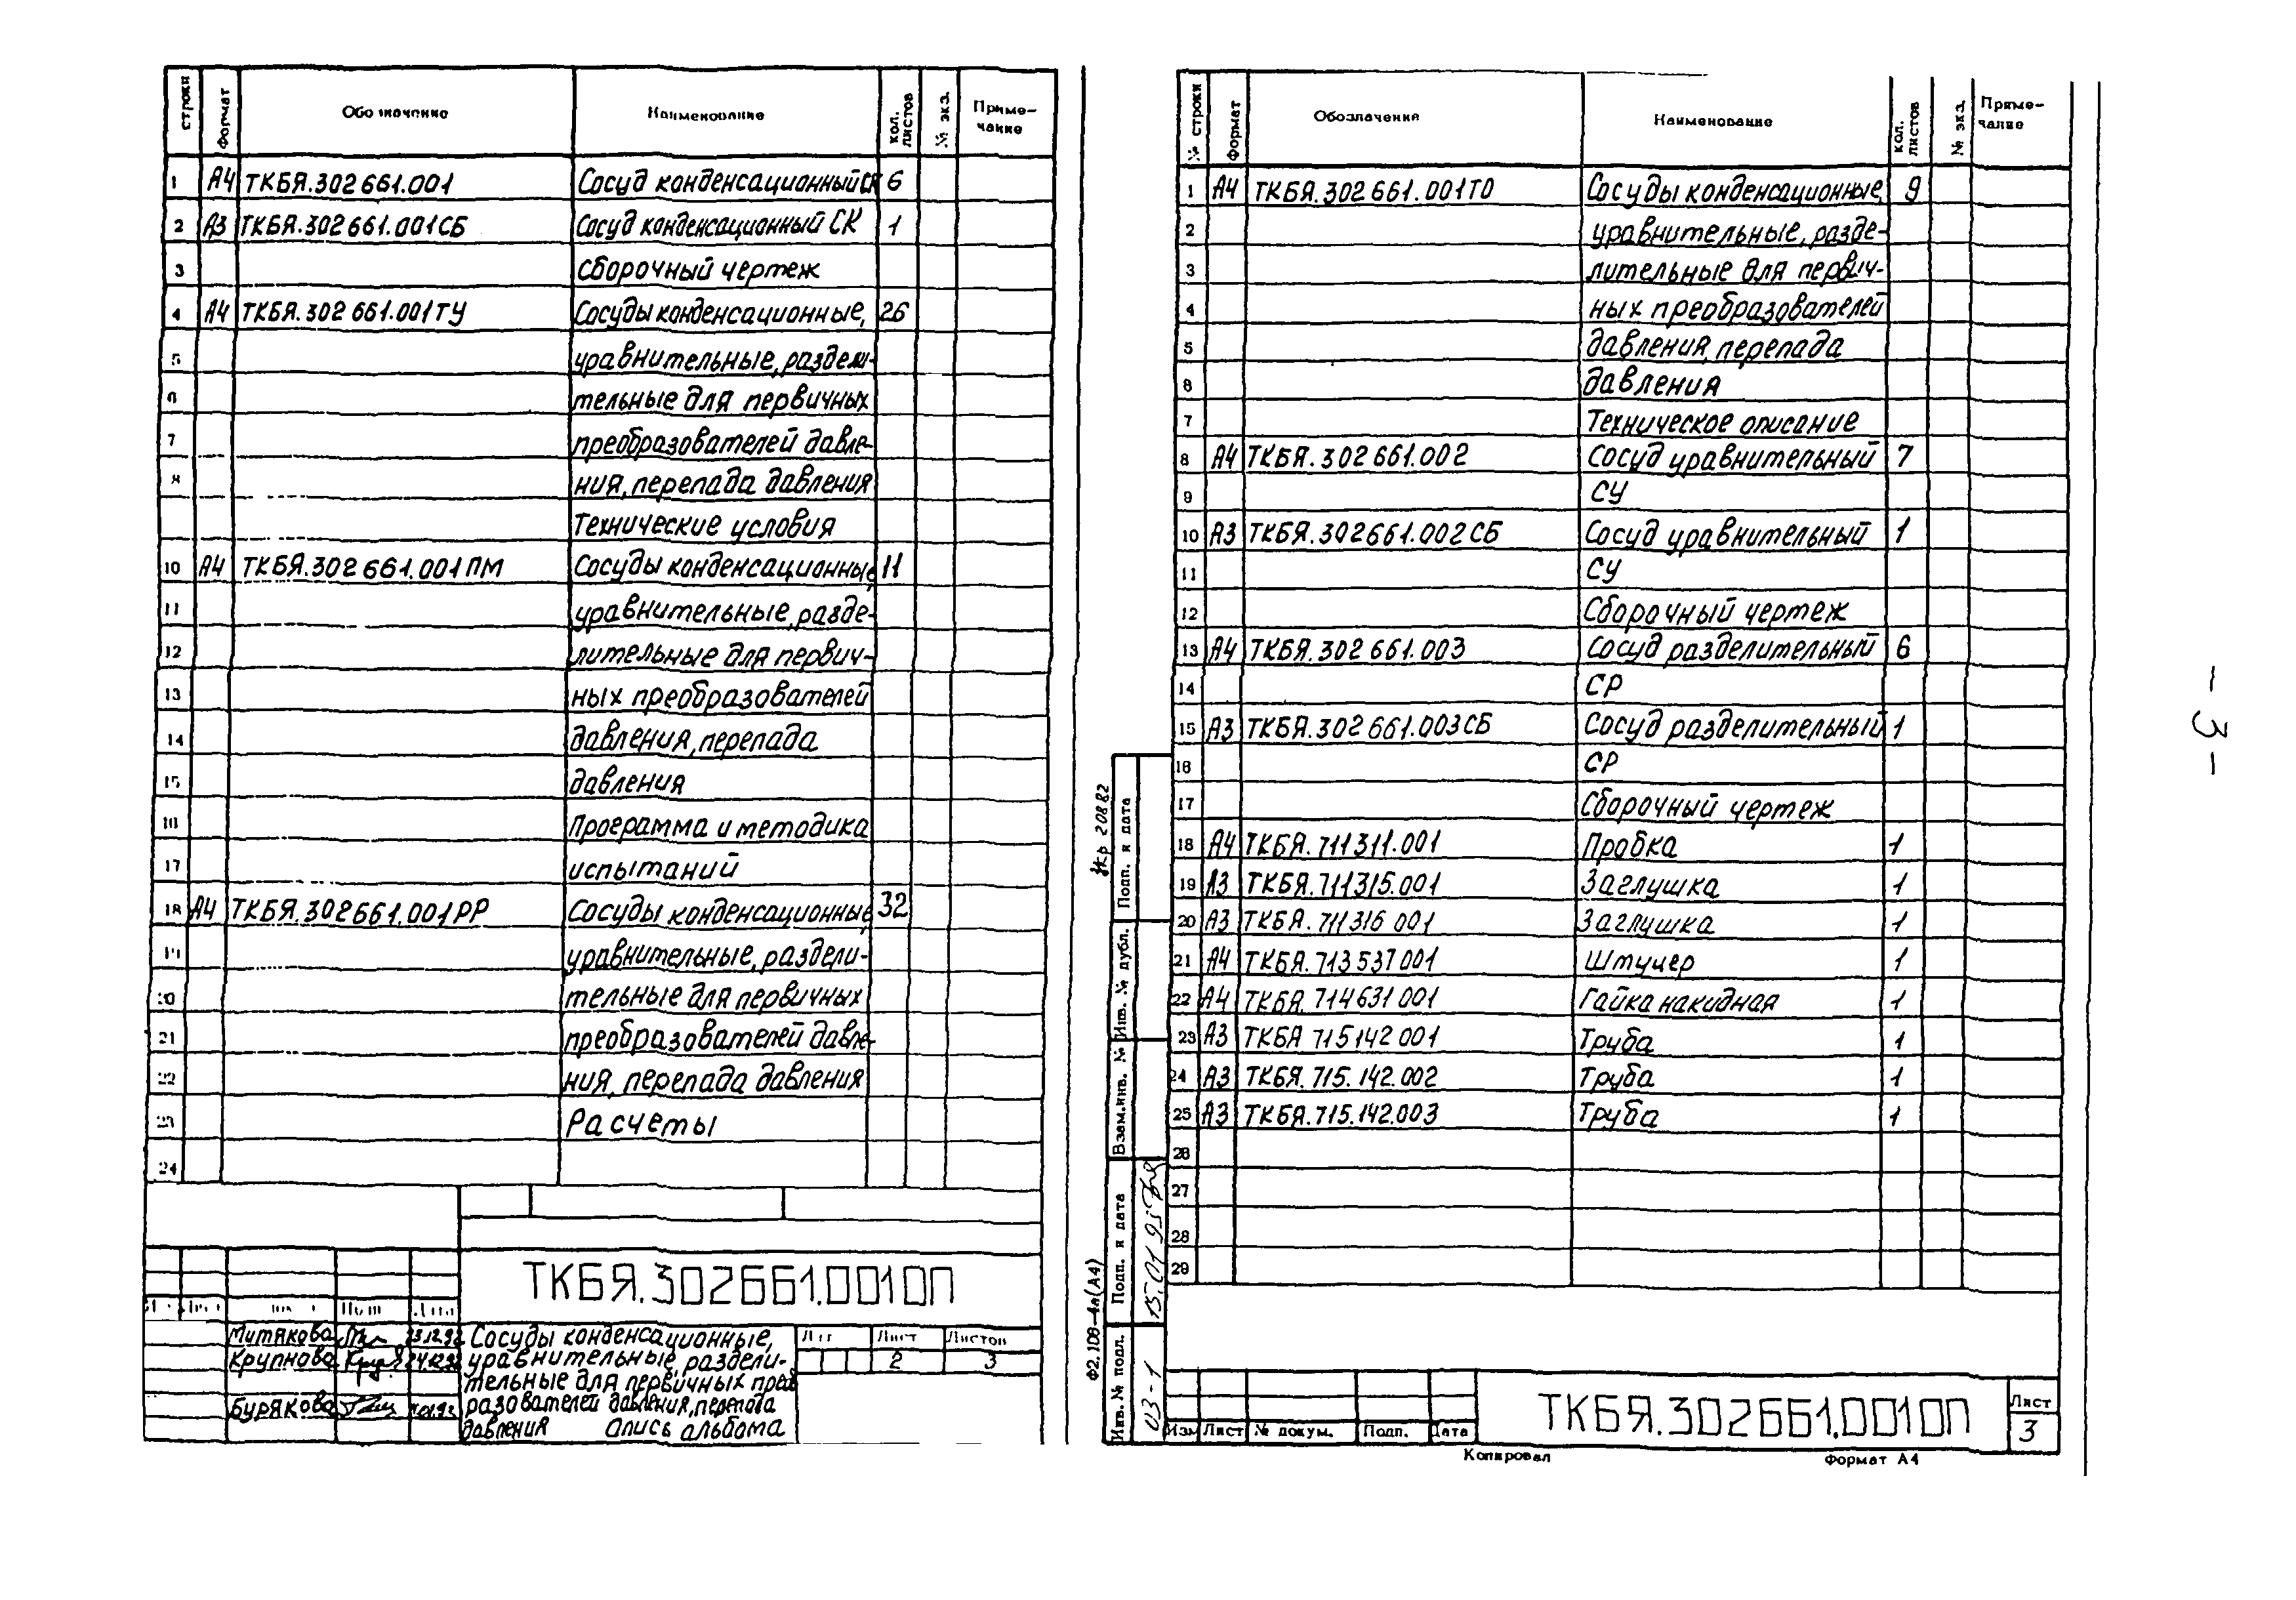 строки Формат Обозначение Наименование кол. листов № экз. Приме-
чание
1 А4 ТКБЯ.302661.001 Сосуд конденсационный СК 6
2 А3 ТКБЯ.302661.001СБ Сосуд конденсационный СК 1
3 Сборочный чертеж
4 А4 ТКБЯ.302661.001ТУ Сосуды конденсационные, 26
5 уравнительные, раздели-
6 тельные для первичных
7 преобразователей давле-
8 ния, перепада давления
Технические условия
10 А4 ТКБЯ.302661.001ПМ Сосуды конденсационные, 11
11 уравнительные, разде-
12 лительные для первич-
13 ных преобразователей
14 давления, перепада
15 давления
16 Программа и методика
17 испытаний
18 А4 ТКБЯ.302661.001РР Сосуды конденсационные, 32
19 уравнительные, раздели-
20 тельные для первичных
21 преобразователей давле-
22 ния, перепада давления
23 Расчеты
24
ТКБЯ.302661.001ОП
Лист Дата
Митякова 23.12.92
Крупнова 24.12.92
Бурякова
Сосуды конденсационные,
уравнительные, раздели-
тельные для первичных преоб
разователей давления, перепада
давления Опись альбома
Лит Лист Листов
2 3
№ строки Формат Обозначение Наименование кол. листов № экз. Приме-
чание
1 А4 ТКБЯ.302661.001ТО Сосуды конденсационные, 9
2 уравнительные, разде-
3 лительные для первич-
4 ных преобразователей
5 давления, перепада
6 давления
7 Техническое описание
8 А4 ТКБЯ.302661.002 Сосуд уравнительный 7
9 СУ
10 А3 ТКБЯ.302661.002СБ Сосуд уравнительный 1
11 СУ
12 Сборочный чертеж
13 А4 ТКБЯ.302661.003 Сосуд разделительный 6
14 СР
15 А3 ТКБЯ.302661.003СБ Сосуд разделительный 1
16 СР
17 Сборочный чертеж
18 А4 ТКБЯ.711311.001 Пробка 1
19 А3 ТКБЯ.711315.001 Заглушка 1
20 А3 ТКБЯ.711316 001 Заглушка 1
21 А4 ТКБЯ.713537001 Штуцер 1
22 А4 ТКБЯ.714631 001 Гайка накидная 1
23 А3 ТКБЯ 715142 001 Труба 1
24 А3 ТКБЯ.715.142.002 Труба 1
25 А3 ТКБЯ.715.142.003 Труба 1
26
27
28
29
Подп. и дата
Инв. № дубл.
Взам.инв. №
Подп. и дата
15.01 93
Инв. № подл.
03-1
Ф2.108-4а(А4)
Изм Лист № докум. Подп. Дата
ТКБЯ.302661.001ОП
Лист
3
Копировал Формат А4
-3-